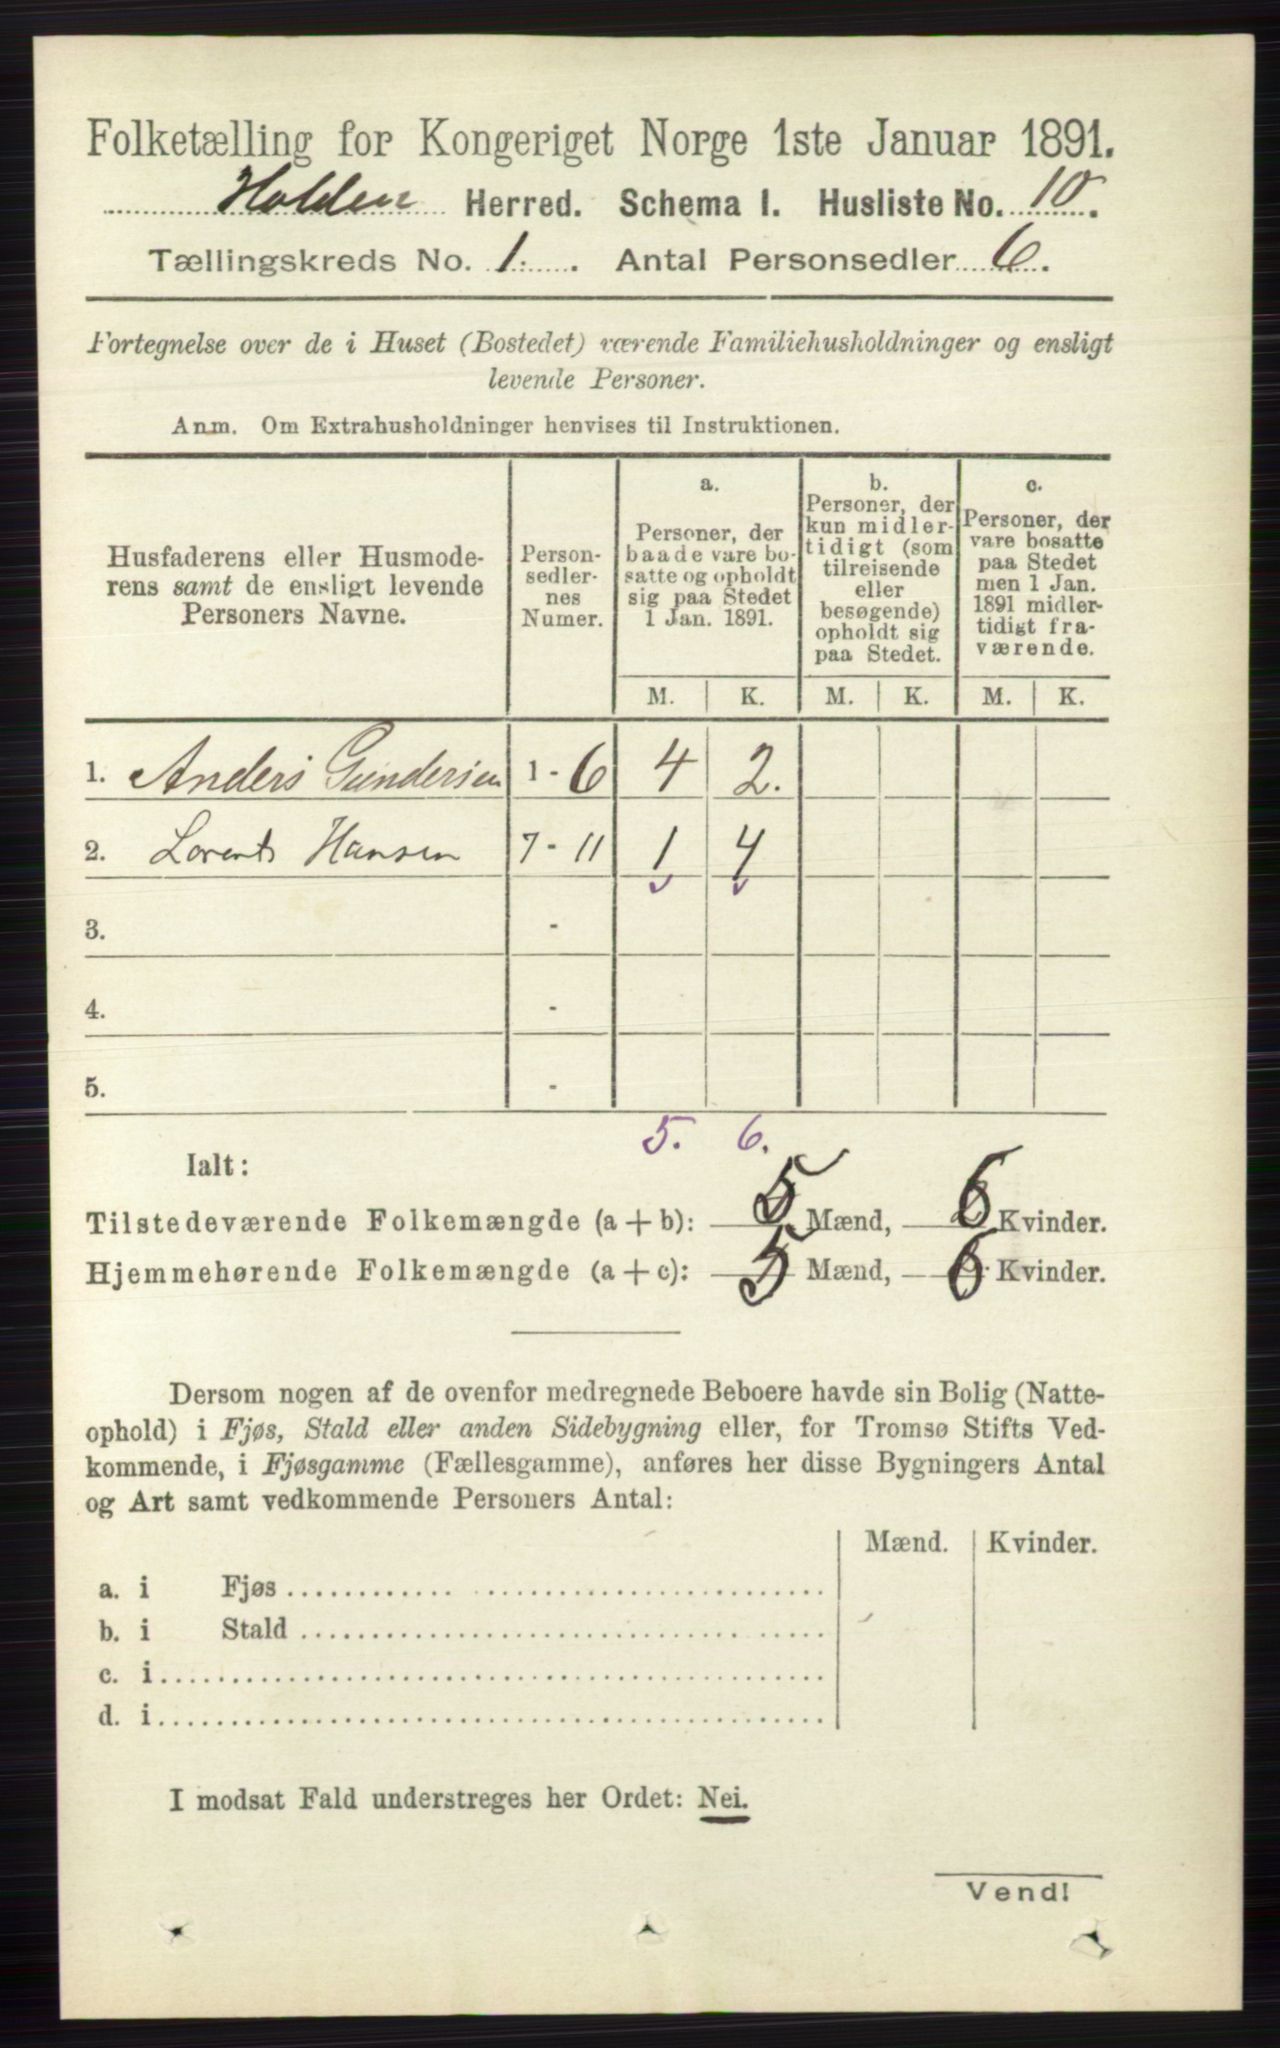 Folketælling for Kongeriget Norge 1ste Januar 1891.
Holden Herred. Schema I. Husliste No. 10.
Tællingskreds No. 1. Antal Personsedler 6.
Fortegnelse over de i Huset (Bostedet) værende Familiehusholdninger og ensligt
levende Personer.
Anm. Om Extrahusholdninger henvises til Instruktionen.
Husfaderens eller Husmode-
rens samt de ensligt levende
Personers Navne.
Person-
sedler-
nes
Numer.
a.
Personer, der
baade vare bo-
satte og opholdt
sig paa Stedet
1 Jan. 1891.
b.
Personer, der
kun midler-
tidigt (som
tilreisende
eller
besøgende)
opholdt sig
paa Stedet.
c.
Personer, der
vare bosatte
paa Stedet
men 1 Jan.
1891 midler-
tidigt fra-
værende.
M. K. M. K. M. K.
1. Anders Gundersen 1 - 6 4 2.
2. Lorents Hansen 7 - 11 1 4
3. -
4. -
5. -
5. 6.
Ialt:
Tilstedeværende Folkemængde (a + b): 5 Mænd, 6 Kvinder.
Hjemmehørende Folkemængde (a + c): 5 Mænd, 6 Kvinder.
Dersom nogen af de ovenfor medregnede Beboere havde sin Bolig (Natte-
ophold) i Fjøs, Stald eller anden Sidebygning eller, for Tromsø Stifts Ved-
kommende, i Fjøsgamme (Fællesgamme), anføres her disse Bygningers Antal
og Art samt vedkommende Personers Antal:
Mænd. Kvinder.
a. i Fjøs
b. i Stald
c. i
d. i
I modsat Fald understreges her Ordet: Nei.
Vend!